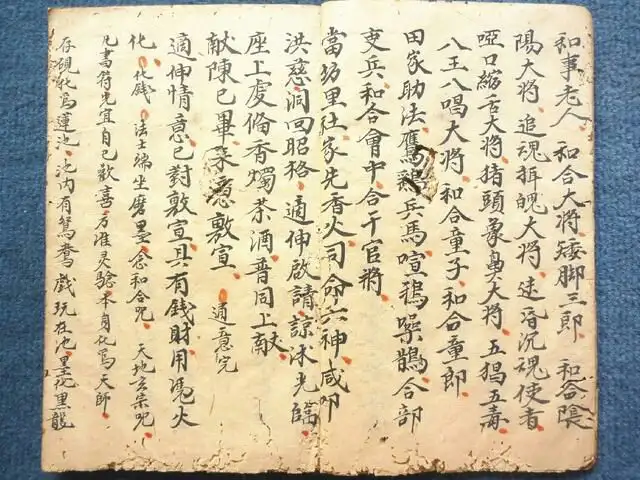 和事老人 和合大将 矮脚三郎 和谷陰
陽大将 追魂捉魄大将 迷昏沉魂使者
啞口縮舌大将 捲頭象鼻大将 五猖五毒
八王八唱大将 和合童子 和合童郎
田家助法 鷹鷄兵馬 喧鴉噪鵲合部
吏兵 和合會中合干官將
當坊里社 家先香火 司命六神 咸叩
洪慈 洞回昭格 適伸啟請 諒沐光臨
座上 虔俻香燭茶酒 普同上献
献陳已畢 來意敷宣 通意完
適伸情意 已對敷宣 具有錢財 用憑火
化 化錢 法士端坐磨墨 念和合咒 天地玄宗呪
凡書符先宜自己歡喜 方准灵騐 本身化為天師
存硯化為蓮池 池內有鴛鴦戲玩在池 墨化黑龍